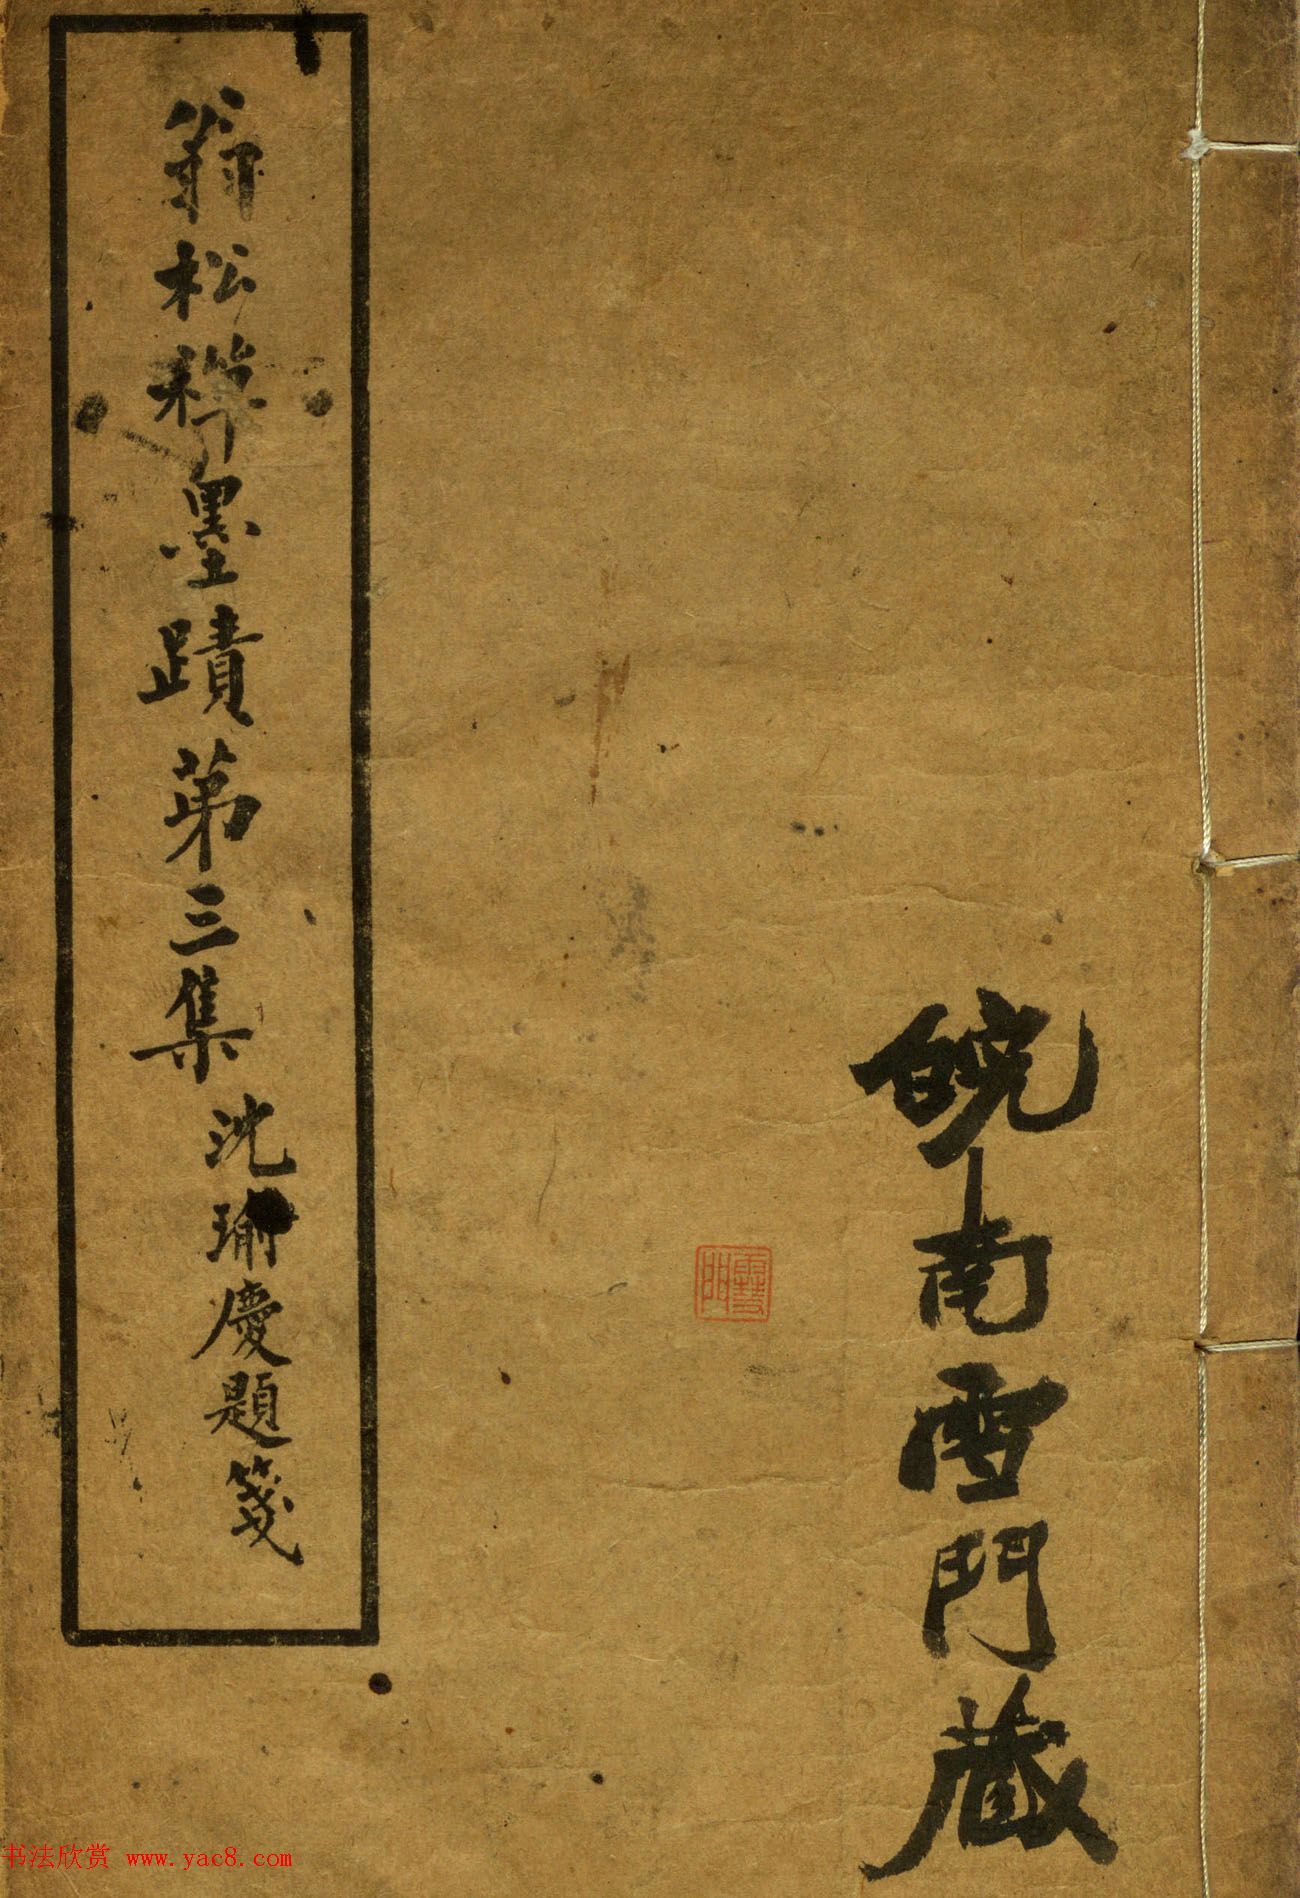 皖南雪門藏
雪門
翁松禪墨蹟第三集
沈瑜慶題箋
书法欣赏 www.yac8.com